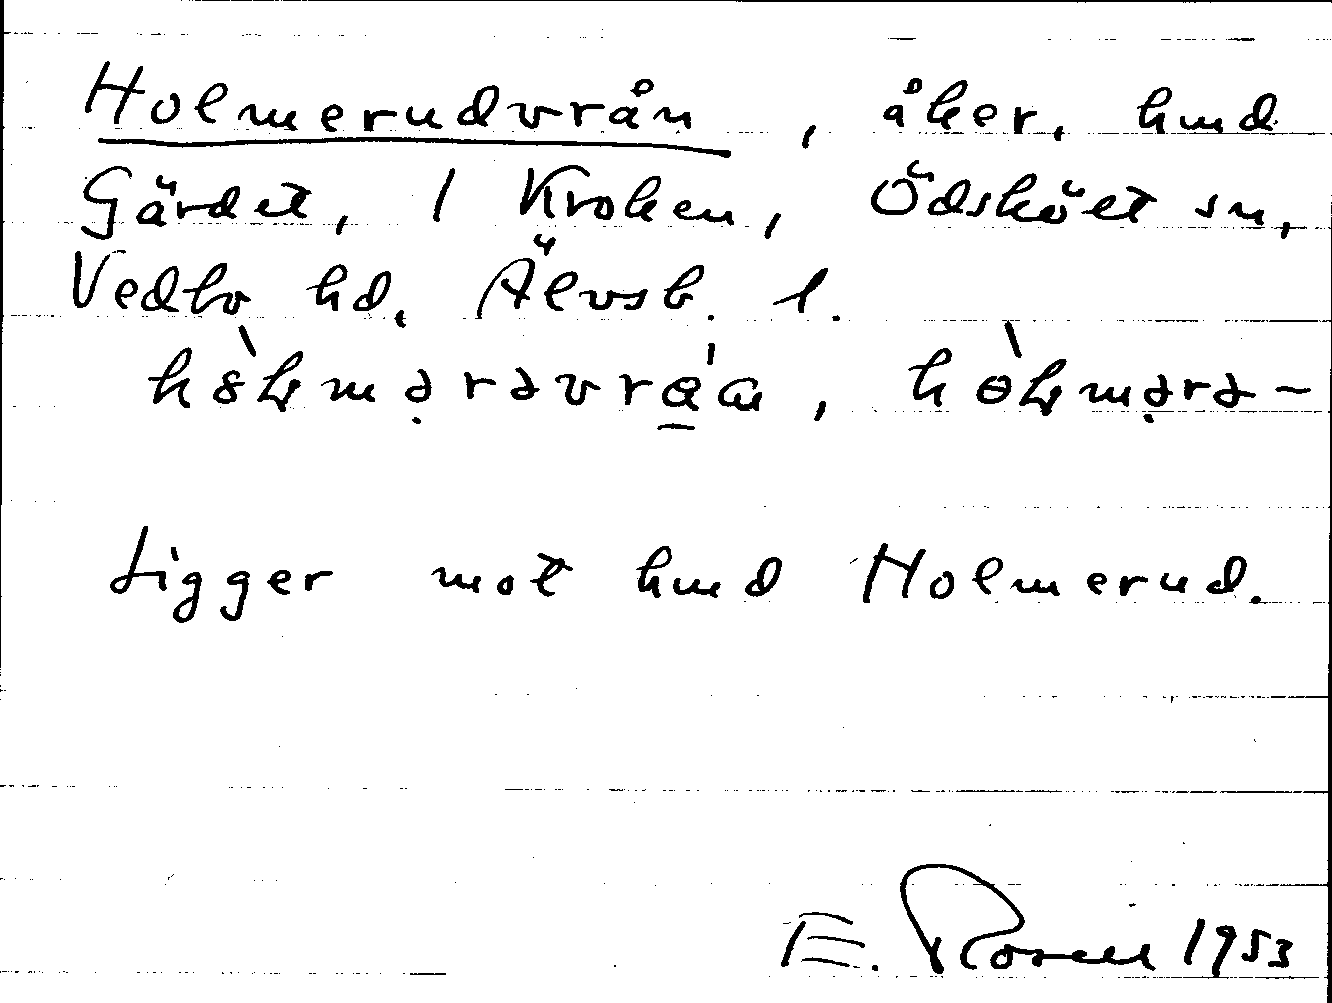 Holmerudvrån, åker, hmd
Gärdet, 1 Kroken, Ödskölt sn,
Vedbo hd. Älvsb. l.
Ligger mot hmd Holmerud.
E. Rosell 1953